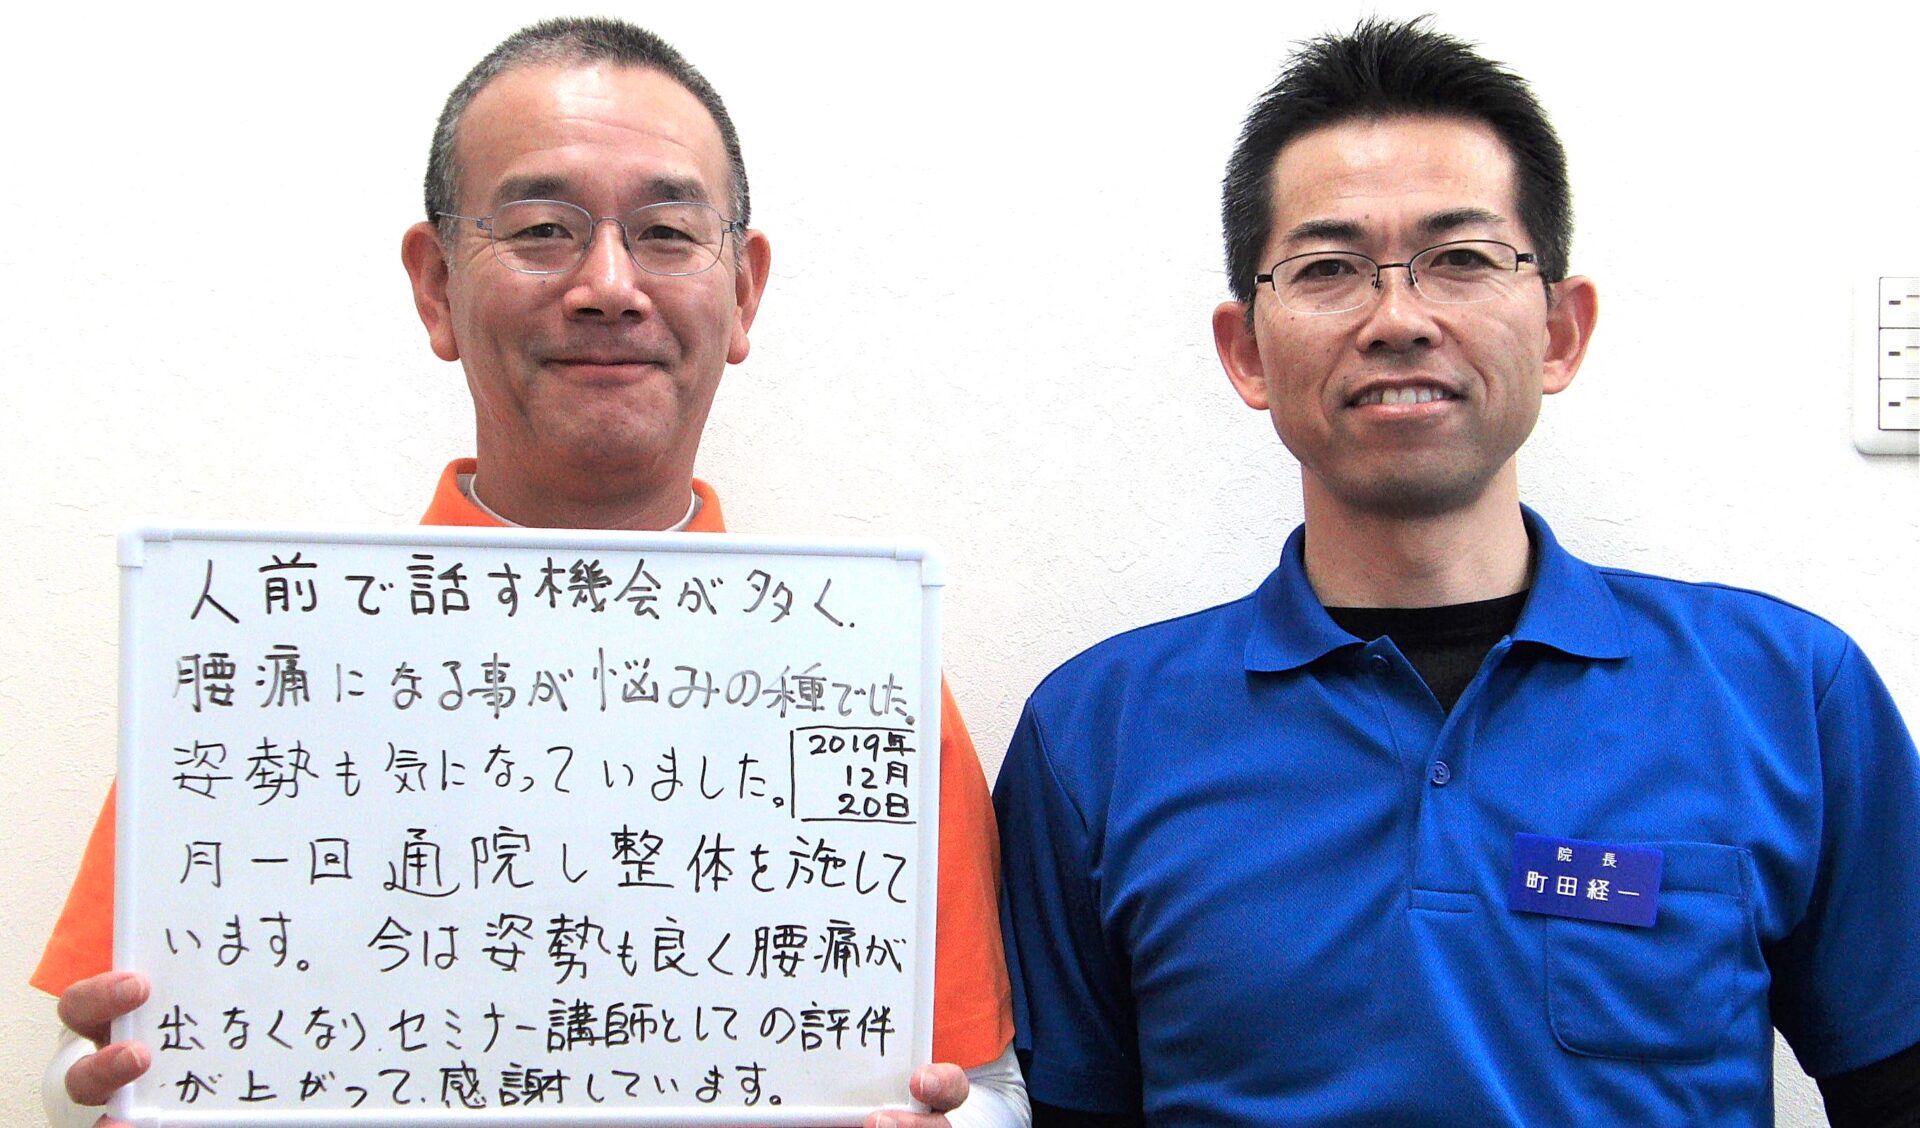 人前で話す機会が多く、
腰痛になる事が悩みの種でした。
姿勢も気になっていました。
2019年
12月
20日
月一回通院し整体を施して
います。今は姿勢も良く腰痛が
出なくなり、セミナー講師としての評伴
が上がって、感謝しています。
院長
町田経一